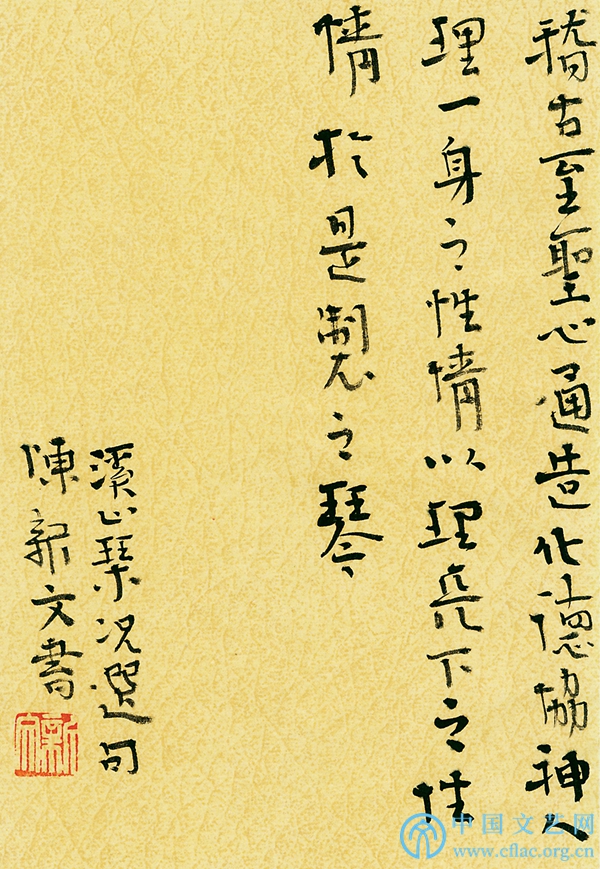 稽古至聖心通造化德協神人
理一身之性情以理天下之性
情於是製之琴
溪山琴況選句
陳新文書
新文
中国文艺网
www.cflac.org.cn